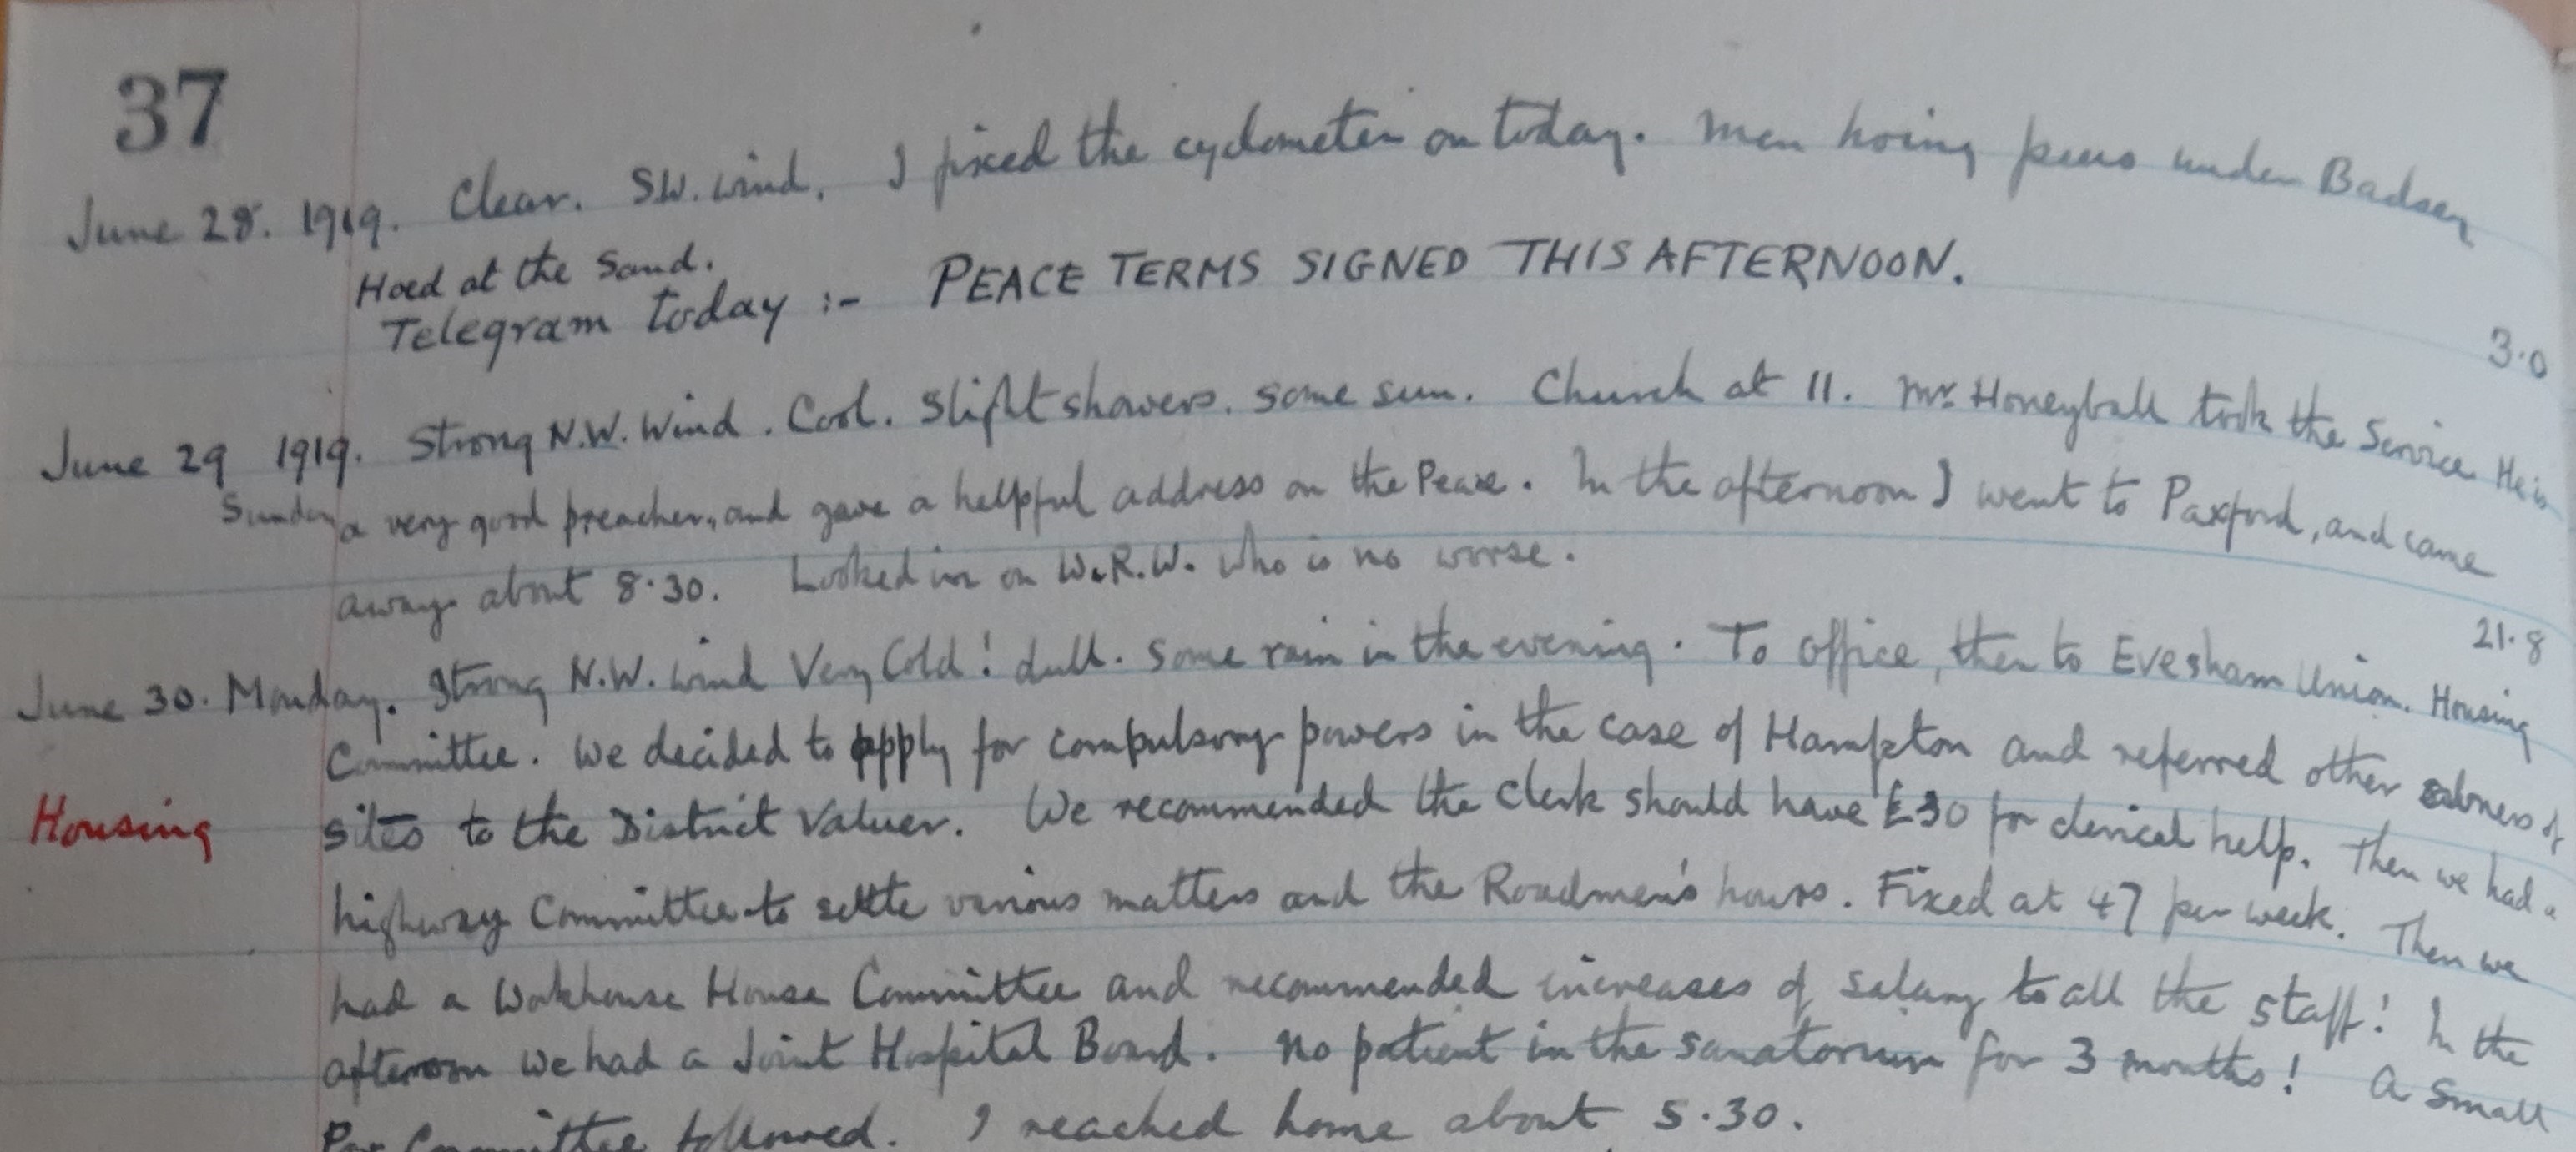 37
June 28. 1919. Clear. SW. wind. I fixed the cyclometer on today. Men hoeing peas under Badsey
Hoed at the Sand.
Telegram today :- PEACE TERMS SIGNED THIS AFTERNOON.
3.0
June 29 1919. Strong N.W. Wind. Cool. Slight showers. Some sun. Church at 11. Mr. Honeyball took the Service He is
Sunday a very good preacher, and gave a helpful address on the Peace. In the afternoon I went to Paxford, and came
away about 8.30. Looked in on W.R.W. who is no worse.
21.8
June 30. Monday. Strong N.W. wind Very Cold! dull. Some rain in the evening. To office, then to Evesham Union. Housing
Committee. We decided to apply for compulsory powers in the case of Hampton and referred other of
Housing sites to the District Valuer. We recommended the Clerk should have £30 for clerical help. Then we had a
highway Committee to settle various matters and the Roadmen's hours. Fixed at 47 per week. Then we
had a Workhouse House Committee and recommended increases of salary to all the staff! In the
afternoon we had a Joint Hospital Board. No patient in the sanatorium for 3 months! A small
Committee followed. I reached home about 5.30.